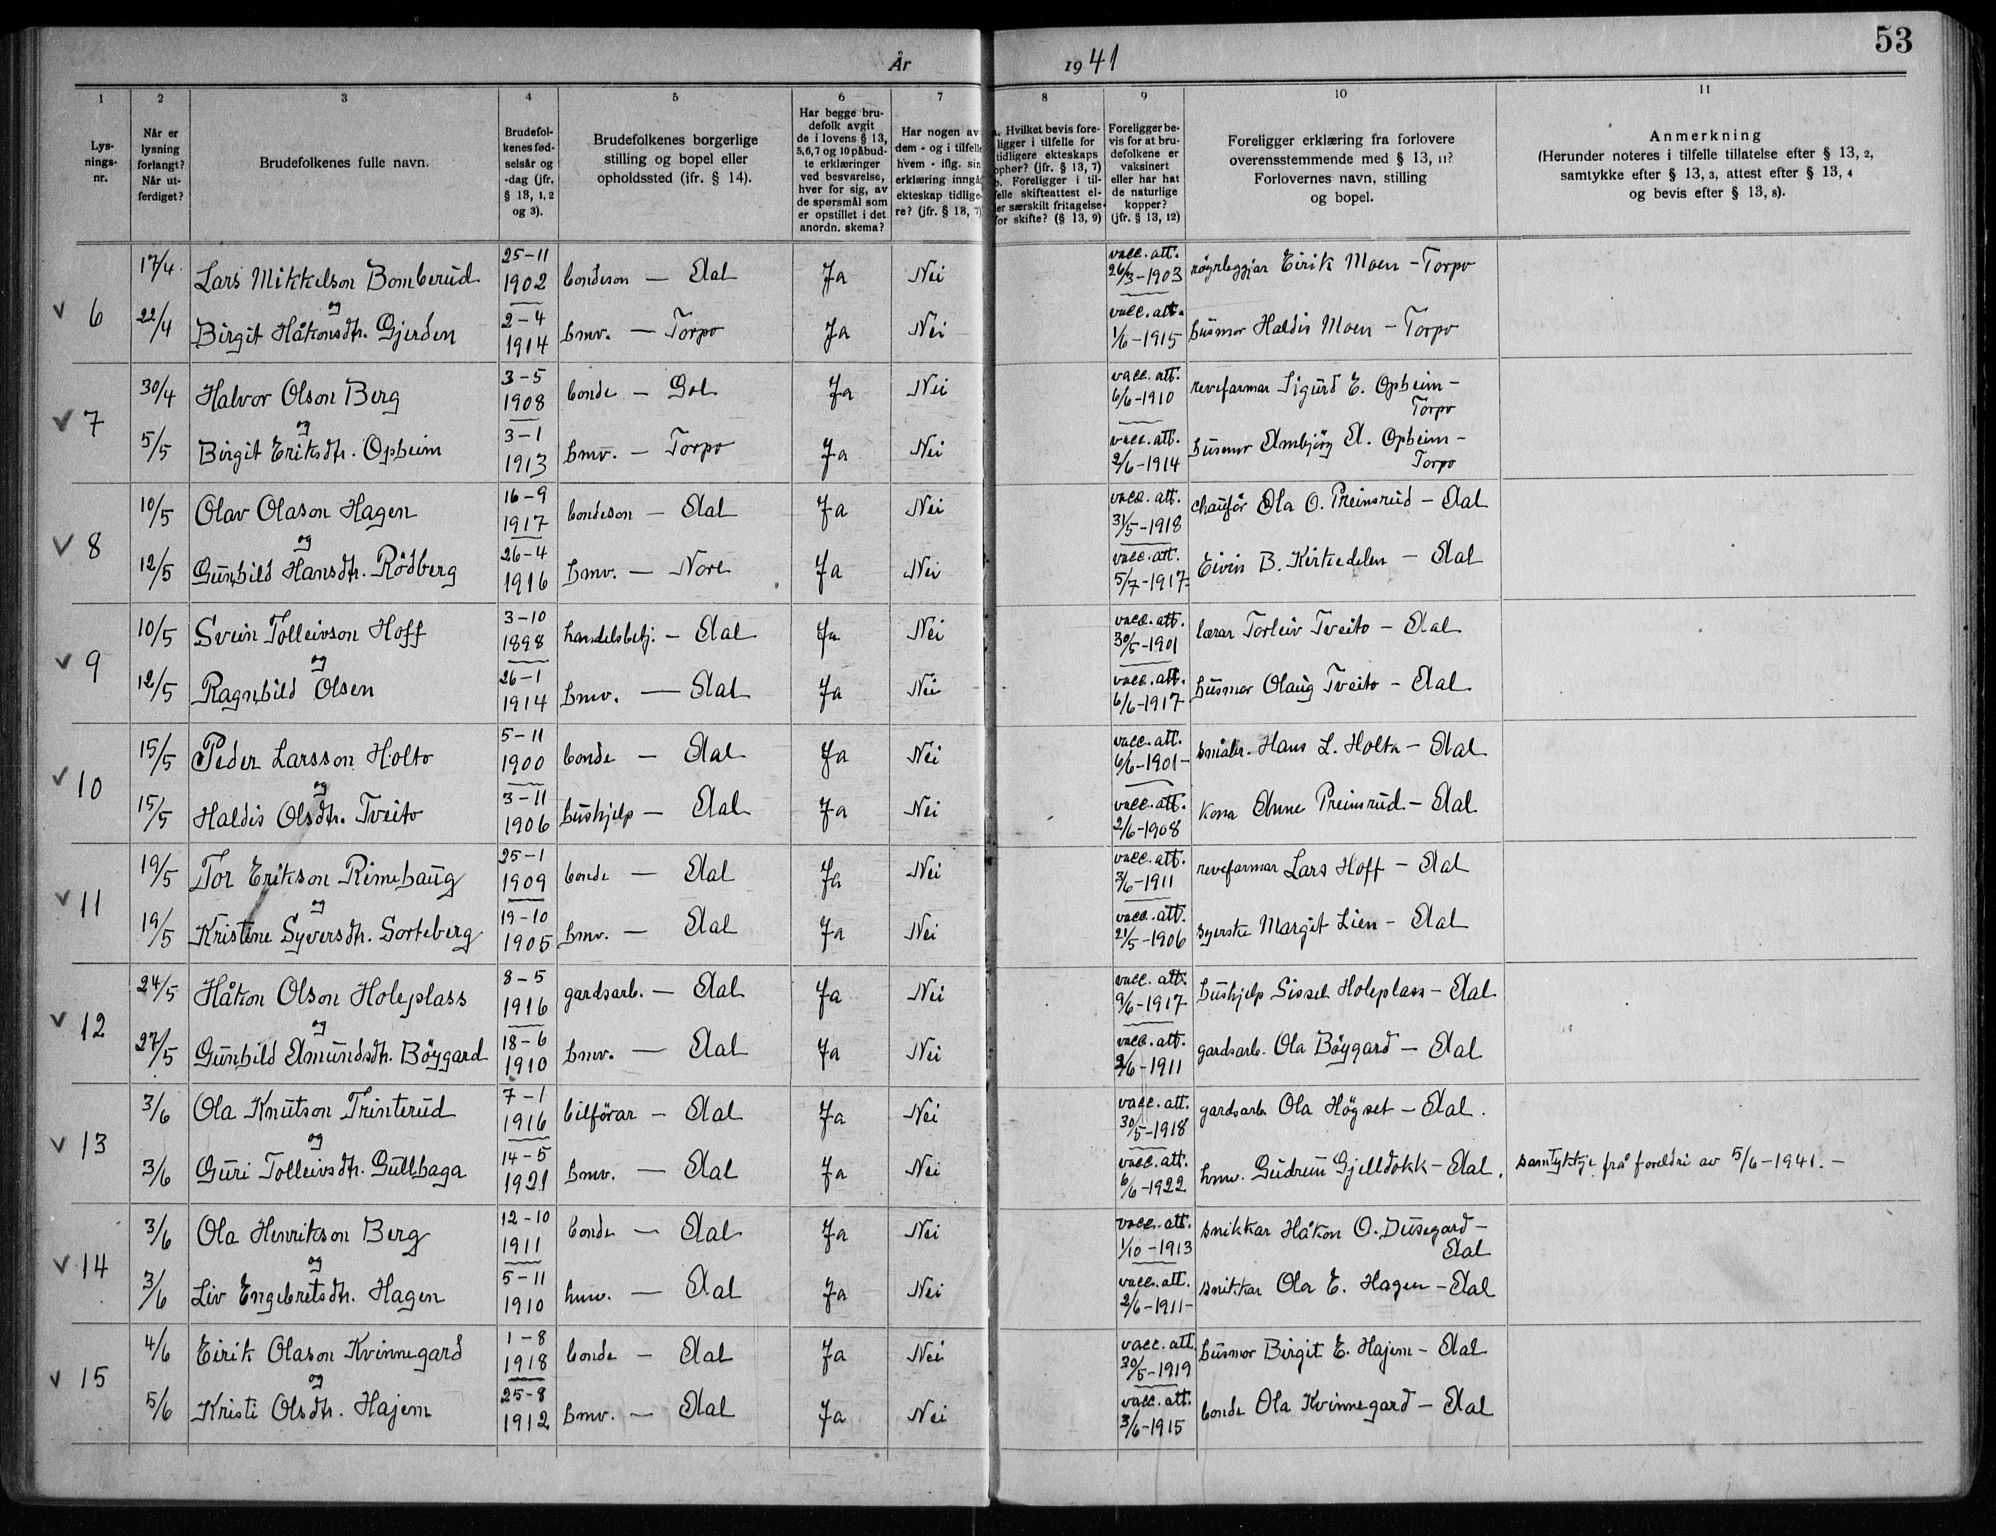 53
År 1941
1 2 3 4 5 6 7 8 9 10 11
Lys-
nings-
nr.
Når er
lysning
forlangt?
Når ut-
ferdiget?
Brudefolkenes fulle navn.
Brudefol-
kenes fød-
selsår og
-dag (jfr.
§ 13, 1, 2
og 3).
Brudefolkenes borgerlige
stilling og bopel eller
opholdssted (jfr. § 14).
Har begge bru-
defolk avgit
de i lovens § 13,
5,6,7 og 10 påbud-
te erklæringer
ved besvarelse,
hver for sig, av
de spørsmål som
er opstillet i det
anordn. skema?
Har nogen av
dem - og i tilfelle
hvem - iflg. sin
erklæring inngå
ekteskap tidlige-
re? (jfr. § 13, 7)
a. Hvilket bevis fore-
ligger i tilfelle for
tidligere ekteskaps
ophør? (jfr. § 13, 7)
b. Foreligger i til-
felle skifteattest el-
ler særskilt fritagelse
for skifte? (§ 13, 9)
Foreligger be-
vis for at bru-
defolkene er
vaksinert
eller har hat
de naturlige
kopper?
(jfr. § 13, 12)
Foreligger erklæring fra forlovere
overensstemmende med § 13, 11?
Forlovernes navn, stilling
og bopel.
Anmerkning
(Herunder noteres i tilfelle tillatelse efter § 13, 2,
samtykke efter § 13, 3, attest efter § 13, 4
og bevis efter § 13, 8).
v 6
17/4 Lars Mikkelson Bomberud 25-11 1902 bondeson - Aal Ja Nei vacc. att. 26/3-1903 røyrleggjar Eirik Moen - Torpo
og
22/4 Birgit Håkonsdtr. Gjerden 2-4 1914 hmv. - Torpo Ja Nei vacc. att. 1/6-1915 husmor Haldis Moen - Torpo
v 7
30/4 Halvor Olson Berg 3-5 1908 bonde - Gol Ja Nei vacc. att. 6/6-1910 revefarmar Sigurd E. Opheim - Torpo
og
5/5 Birgit Eriksdtr. Opheim 3-1 1913 hmv. - Torpo Ja Nei vacc. att. 2/6-1914 husmor Ambjörg A. Opheim - Torpo
v 8
10/5 Olav Olason Hagen 16-9 1917 bondeson - Aal Ja Nei vacc. att. 31/5-1918 chauför Ola O. Preinsrud - Aal
og
12/5 Gunhild Hansdtr. Rödberg 26-4 1916 hmv. - Nore Ja Nei vacc. att. 5/7-1917 Eivin B. Kirkedelen - Aal
v 9
10/5 Svein Tolleivson Hoff 3-10 1898 handelsbetj. - Aal Ja Nei vacc. att. 30/5-1901 lærar Torleiv Tveito - Aal
og
12/5 Ragnhild Olsen 26-1 1914 hmv. - Aal Ja Nei vacc. att. 6/6-1917 husmor Olaug Tveito - Aal
v 10
15/5 Peder Larsson Holto 5-11 1900 bonde - Aal Ja Nei vacc. att. 6/6-1901- småbr. Hans L. Holta - Aal
og
15/5 Haldis Olsdtr. Tveito 3-11 1906 hushjelp - Aal Ja Nei vacc. att. 2/6-1908 kona Anne Preinsrud - Aal
v 11
19/5 Tor Erikson Rimehaug 25-1 1909 bonde - Aal Ja Nei vacc. att. 3/6-1911 revefarmar Lars Hoff - Aal
og
19/5 Kristine Syversdtr. Sorteberg 19-10 1905 hmv. - Aal Ja Nei vacc. att. 21/5-1906 syerske Margit Lien - Aal
v 12
24/5 Håkon Olson Holeplass 8-5 1916 gardsarb. - Aal Ja Nei vacc. att. 9/6-1917 hushjelp Sissel Holeplass - Aal
og
27/5 Gunhild Amundsdtr. Böygard 18-6 1910 hmv. - Aal Ja Nei vacc. att. 2/6-1911 gardsarb. Ola Böygard - Aal
v 13
3/6 Ola Knutson Trinterud 7-1 1916 bilförar - Aal Ja Nei vacc. att. 30/5-1918 gardsarb. Ola Högset - Aal.
og
3/6 Guri Tolleivsdtr. Gullhaga 14-5 1921 hmv. - Aal Ja Nei vacc. att. 6/6-1922 hmv. Gudrun Gjelldokk - Aal. samtykkje frå foreldri av 5/6-1941. -
v 14
3/6 Ola Henrikson Berg 12-10 1911 bonde - Aal Ja Nei vacc. att. 1/10-1913 snikkar Håkon O. Dusegard - Aal
og
3/6 Liv Engebretsdtr. Hagen 5-11 1910 hmv. - Aal Ja Nei vacc. att. 2/6-1911- snikkar Ola E. Hagen - Aal
v 15
4/6 Eirik Olason Kvinnegard 1-8 1918 bonde - Aal Ja Nei vacc. att. 30/5-1919 husmor Birgit E. Hajem - Aal
og
5/6 Kristi Olsdtr. Hajem 25-8 1912 hmv. - Aal Ja Nei vacc. att. 3/6-1915 bonde Ola Kvinnegard - Aal